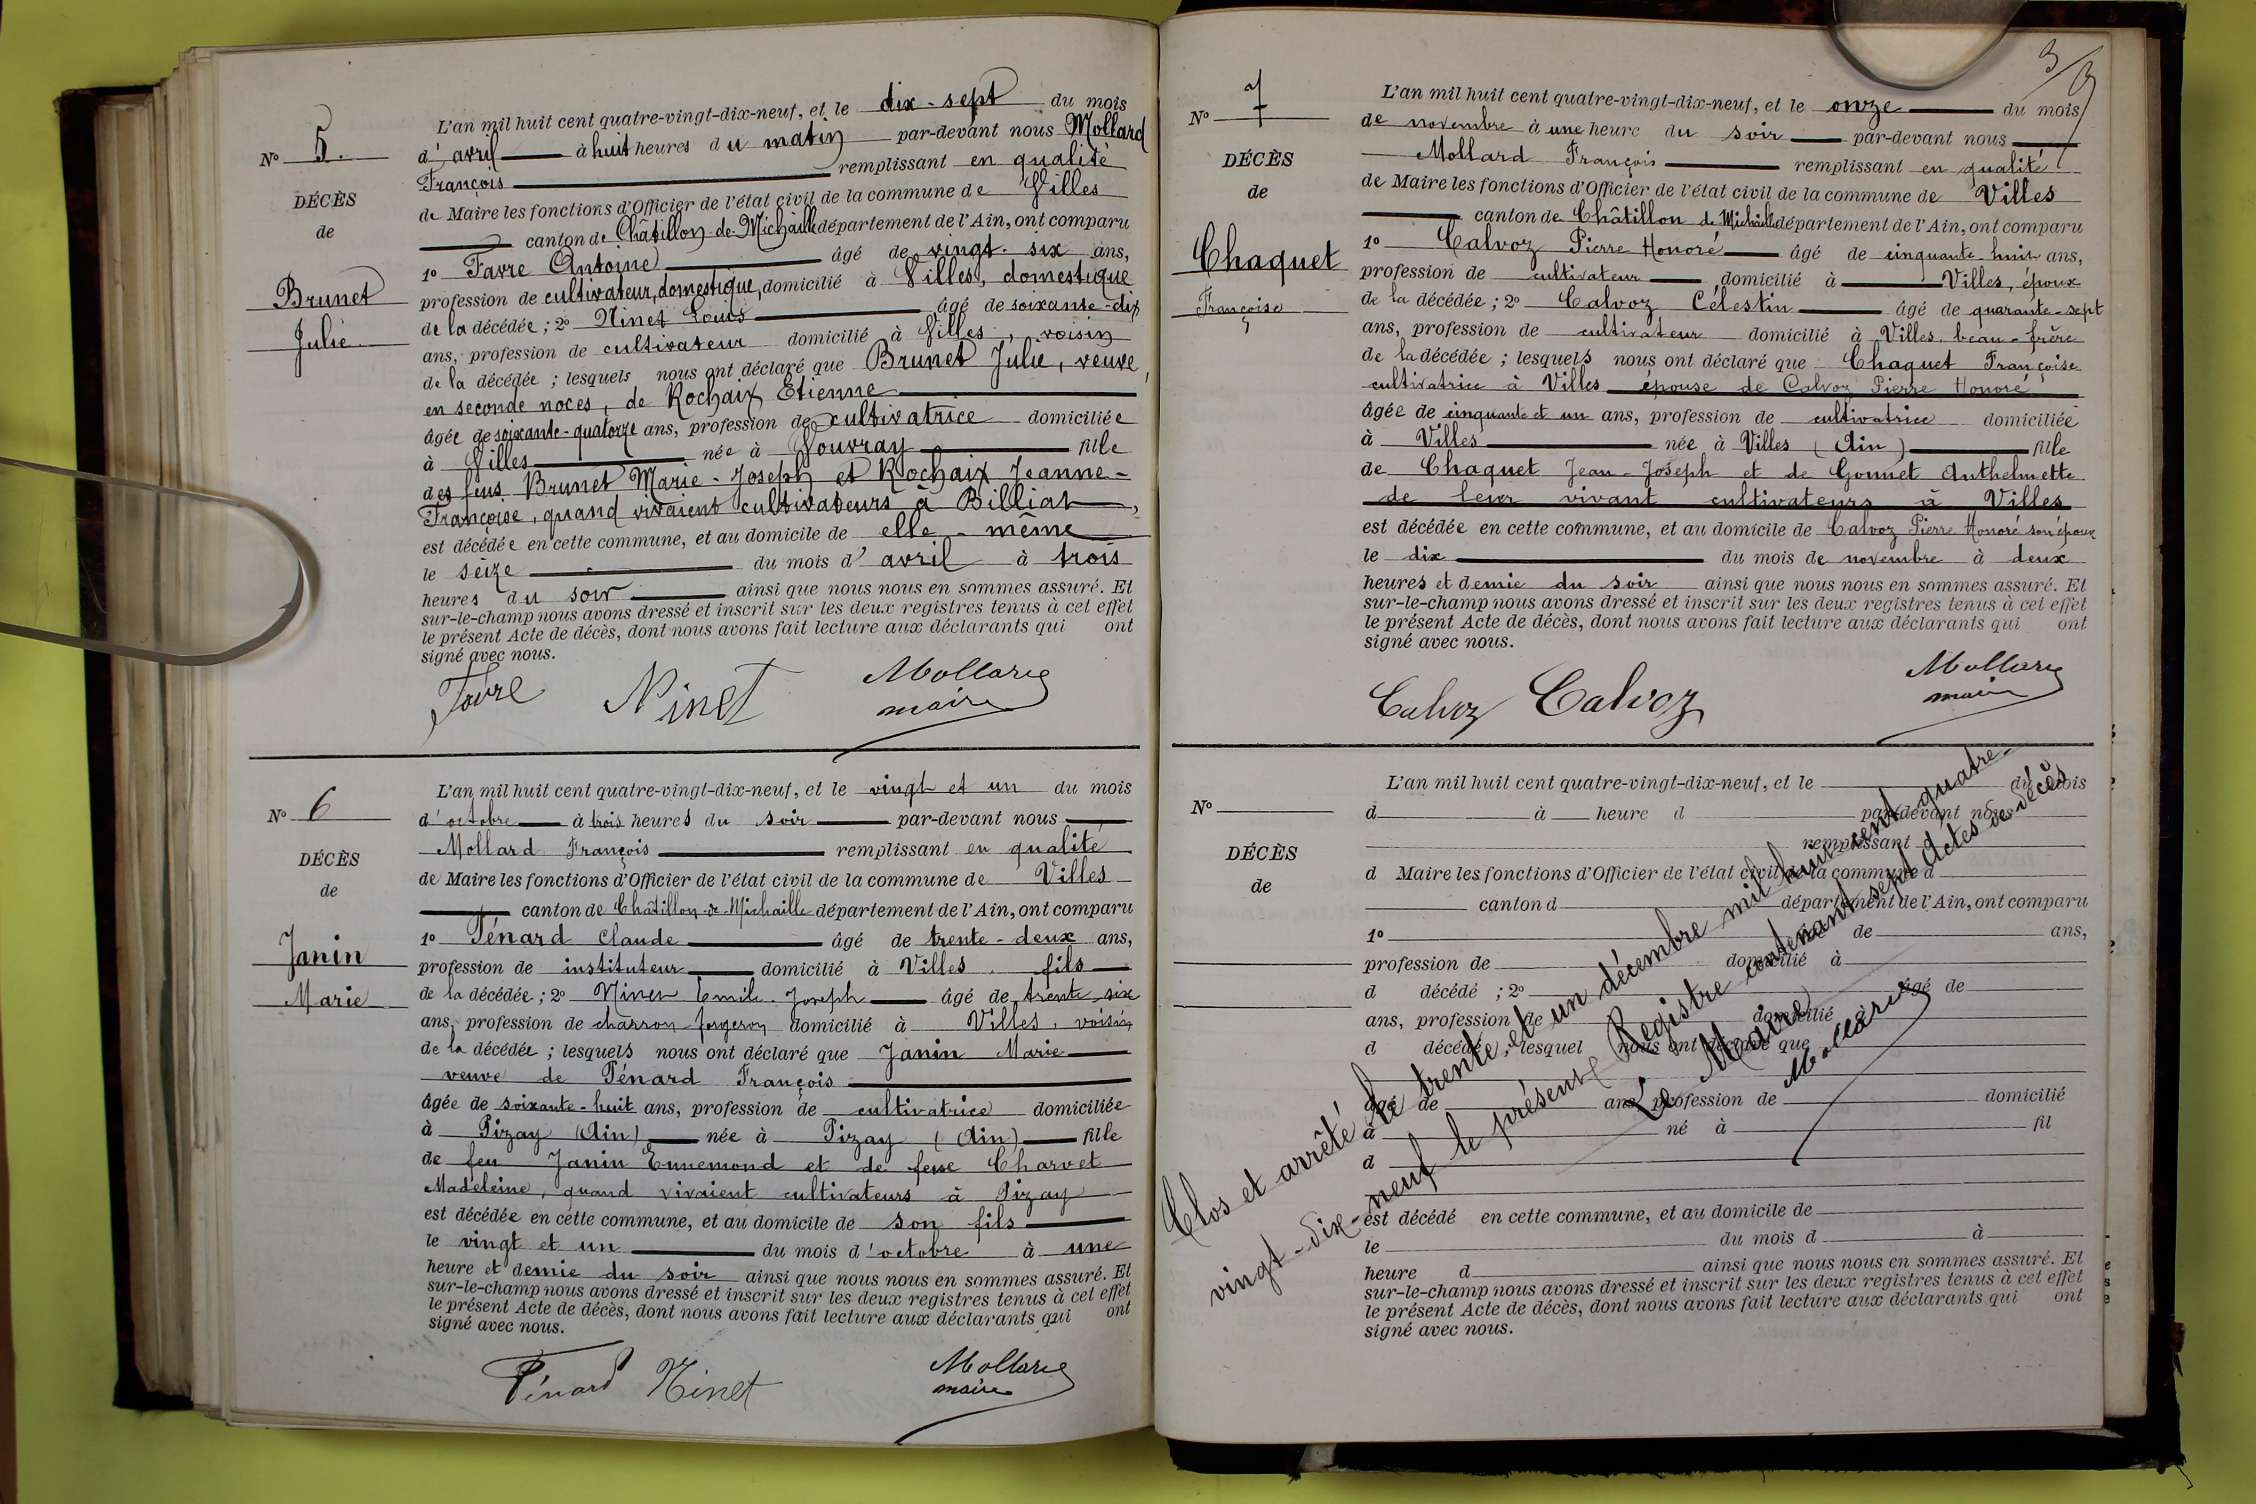 N° 5.
DÉCÈS
de
Brunet
Julie
L'an mil huit cent quatre-vingt-dix-neuf, et le dix-sept du mois
d'avril à huit heures du matin par-devant nous Mollard
François remplissant en qualité
de Maire les fonctions d'Officier de l'état civil de la commune de Villes
canton de Châtillon-de-Michaille département de l'Ain, ont comparu
1° Favre Antoine âgé de vingt-six ans,
profession de cultivateur, domestique, domicilié à Villes, domestique
de la décédée ; 2° Ninet Louis âgé de soixante-dix
ans, profession de cultivateur domicilié à Villes, voisin
de la décédée ; lesquels nous ont déclaré que Brunet Julie, veuve,
en seconde noces, de Rochaix Etienne
âgée de soixante-quatorze ans, profession de cultivatrice domiciliée
à Villes née à Vouvray fille
des feus Brunet Marie-Joseph et Rochaix Jeanne-
Françoise, quand vivaient cultivateurs à Billiat,
est décédée en cette commune, et au domicile de elle-même
le seize du mois d'avril à trois
heures du soir ainsi que nous nous en sommes assuré. Et
sur-le-champ nous avons dressé et inscrit sur les deux registres tenus à cet effet
le présent Acte de décès, dont nous avons fait lecture aux déclarants qui ont
signé avec nous.
Favre Ninet Mollard
maire
N° 6
DÉCÈS
de
Janin
Marie
L'an mil huit cent quatre-vingt-dix-neuf, et le vingt et un du mois
d'octobre à trois heures du soir par-devant nous
Mollard François remplissant en qualité
de Maire les fonctions d'Officier de l'état civil de la commune de Villes
canton de Châtillon-de-Michaille département de l'Ain, ont comparu
1° Pénard Claude âgé de trente-deux ans,
profession de instituteur domicilié à Villes fils
de la décédée ; 2° Ninet Emile-Joseph âgé de trente-six
ans, profession de charron forgeron domicilié à Villes, voisin
de la décédée ; lesquels nous ont déclaré que Janin Marie
veuve de Pénard François
âgée de soixante-huit ans, profession de cultivatrice domiciliée
à Pizay (Ain) née à Pizay (Ain) fille
de feu Janin Ennemond et de feue Charvet
Madeleine, quand vivaient cultivateurs à Pizay
est décédée en cette commune, et au domicile de son fils
le vingt et un du mois d'octobre à une
heure et demie du soir ainsi que nous nous en sommes assuré. Et
sur-le-champ nous avons dressé et inscrit sur les deux registres tenus à cet effet
le présent Acte de décès, dont nous avons fait lecture aux déclarants qui ont
signé avec nous.
Pénard Ninet Mollard
maire
3
N° 7
DÉCÈS
de
Chaquet
Françoise
L'an mil huit cent quatre-vingt-dix-neuf, et le onze du mois
de novembre à une heure du soir par-devant nous
Mollard François remplissant en qualité
de Maire les fonctions d'Officier de l'état civil de la commune de Villes
canton de Châtillon de Michaille département de l'Ain, ont comparu
1° Calvoz Pierre Honoré âgé de cinquante-huit ans,
profession de cultivateur domicilié à Villes, époux
de la décédée ; 2° Calvoz Célestin âgé de quarante-sept
ans, profession de cultivateur domicilié à Villes, beau-frère
de la décédée ; lesquels nous ont déclaré que Chaquet Françoise
cultivatrice à Villes épouse de Calvoz Pierre Honoré
âgée de cinquante et un ans, profession de cultivatrice domiciliée
à Villes née à Villes (Ain) fille
de Chaquet Jean-Joseph et de Gonnet Anthelmette
de leur vivant cultivateurs à Villes
est décédée en cette commune, et au domicile de Calvoz Pierre Honoré son époux
le dix du mois de novembre à deux
heures et demie du soir ainsi que nous nous en sommes assuré. Et
sur-le-champ nous avons dressé et inscrit sur les deux registres tenus à cet effet
le présent Acte de décès, dont nous avons fait lecture aux déclarants qui ont
signé avec nous.
Calvoz Calvoz Mollard
maire
N°
DÉCÈS
de
L'an mil huit cent quatre-vingt-dix-neuf, et le du mois
d à heure d par-devant nous
remplissant
d Maire les fonctions d'Officier de l'état civil de la commune d
canton d département de l'Ain, ont comparu
1° âgé de ans,
profession de domicilié à
d décédé ; 2° âgé de
ans, profession de domicilié à
d décédé ; lesquel nous ont déclaré que
âgé de ans, profession de domicilié
à né à fil
d
est décédé en cette commune, et au domicile de
le du mois d à
heure d ainsi que nous nous en sommes assuré. Et
sur-le-champ nous avons dressé et inscrit sur les deux registres tenus à cet effet
le présent Acte de décès, dont nous avons fait lecture aux déclarants qui ont
signé avec nous.
Clos et arrêté le trente et un décembre mil huit cent quatre-
vingt-dix-neuf le présent Registre contenant sept Actes de décès
Le Maire
Mollard